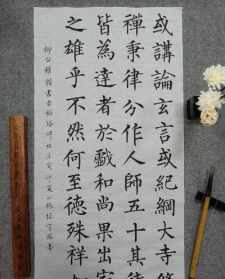 或講論玄言或紀綱大寺
禪秉律分作人師五十其徒
皆為達者於戲和尚果出家
之雄乎不然何至德殊祥